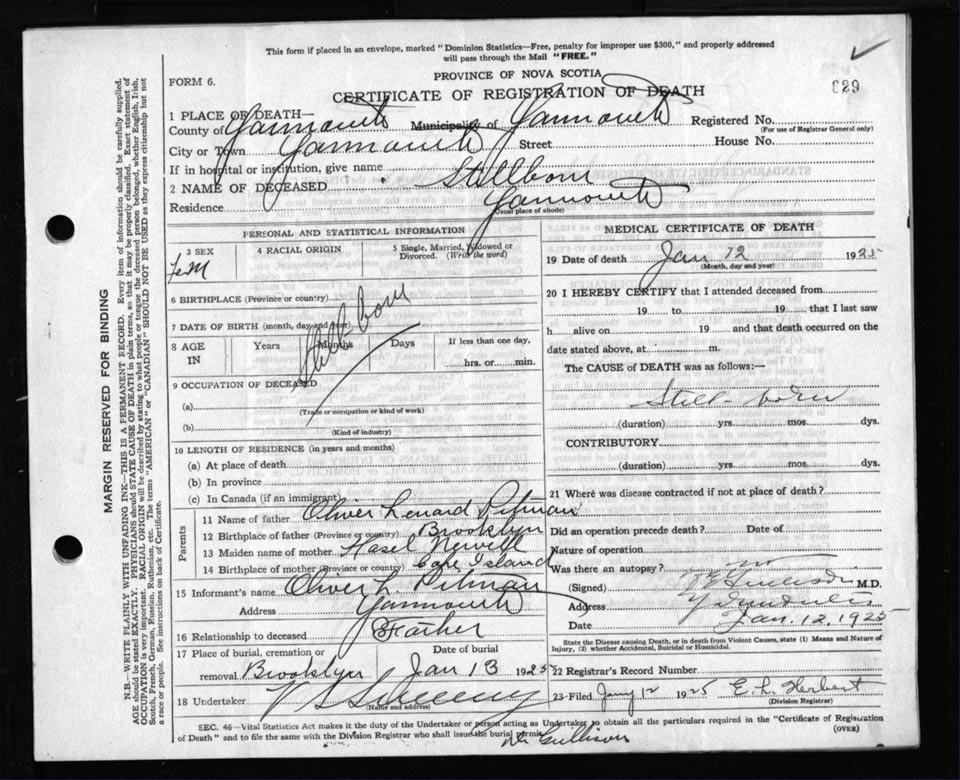 This form if placed in an envelope, marked "Dominion Statistics—Free, penalty for improper use $300," and properly addressed
will pass through the Mail "FREE."
FORM 6.
PROVINCE OF NOVA SCOTIA
CERTIFICATE OF REGISTRATION OF DEATH
629
1 PLACE OF DEATH—
County of Yarmouth Municipality of Yarmouth Registered No.
(For use of Registrar General only)
City or Town Yarmouth Street House No.
If in hospital or institution, give name
2 NAME OF DECEASED Stillborn
Residence Yarmouth
(Usual place of abode)
PERSONAL AND STATISTICAL INFORMATION
3 SEX 4 RACIAL ORIGIN 5 Single, Married, Widowed or Divorced. (Write the word)
Fem
6 BIRTHPLACE (Province or country)
7 DATE OF BIRTH (month, day and year)
Still born
8 AGE IN Years Months Days If less than one day, hrs. or min.
9 OCCUPATION OF DECEASED
(a)
(Trade or occupation or kind of work)
(b)
(Kind of industry)
10 LENGTH OF RESIDENCE (in years and months)
(a) At place of death
(b) In province
(c) In Canada (if an immigrant)
Parents
11 Name of father Oliver Lenard Pitman
12 Birthplace of father (Province or country) Brooklyn
13 Maiden name of mother Hasel Newell
14 Birthplace of mother (Province or country) Cape Island
15 Informant's name Oliver L. Pitman
Address Yarmouth
16 Relationship to deceased Father
17 Place of burial, cremation or removal Brooklyn Date of burial Jan 13 1925
18 Undertaker V S Sweeny
(Name and address)
MEDICAL CERTIFICATE OF DEATH
19 Date of death Jan 12 1925
(Month, day and year)
20 I HEREBY CERTIFY that I attended deceased from
19 to 19 that I last saw
h alive on 19 and that death occurred on
date stated above, at m.
The CAUSE of DEATH was as follows:—
Still-born
(duration) yrs. mos. dys.
CONTRIBUTORY
(duration) yrs. mos. dys.
21 Where was disease contracted if not at place of death?
Did an operation precede death? Date of
Nature of operation
Was there an autopsy? no
(Signed) M.D.
Address Yarmouth
Date Jan. 12, 1925
State the Disease causing Death, or in death from Violent Causes, state (1) Means and Nature of
Injury, (2) whether Accidental, Suicidal or Homicidal.
22 Registrar's Record Number
23 Filed Jany 12 1925 E. L. Herbert
(Division Registrar)
SEC. 46—Vital Statistics Act makes it the duty of the Undertaker or person acting as Undertaker to obtain all the particulars required in the "Certificate of Registration
of Death" and to file the same with the Division Registrar who shall issue the burial permit.
(OVER)
Dr Gullison
MARGIN RESERVED FOR BINDING
N.B.—WRITE PLAINLY WITH UNFADING INK—THIS IS A PERMANENT RECORD. Every item of information should be carefully supplied.
AGE should be stated EXACTLY. PHYSICIANS should STATE CAUSE OF DEATH in plain terms, so that it may be properly classified. Exact statement of
OCCUPATION is very important. RACIAL ORIGIN will be described by stating to what people or tongue the deceased person belonged, whether English, Irish,
Scotch, French, German, Russian, Ruthenian, etc. The terms "AMERICAN" or "CANADIAN" SHOULD NOT BE USED as they express citizenship but not
a race or people. See instructions on back of Certificate.